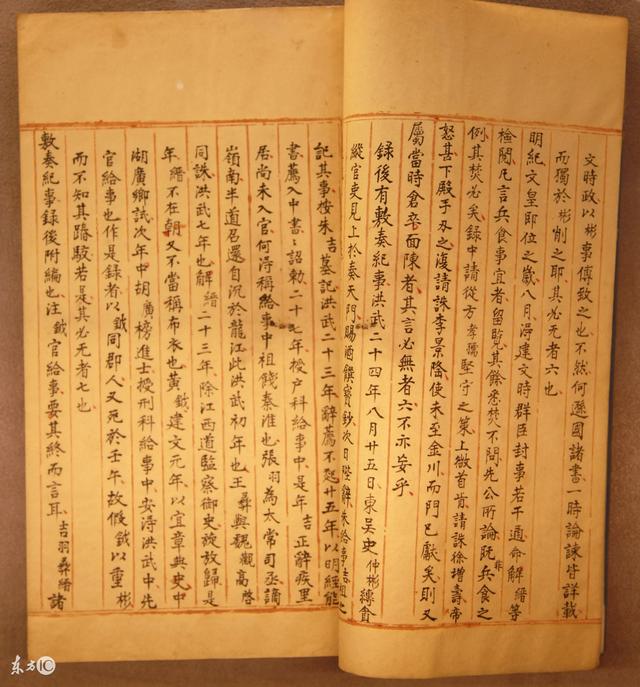 文時政以彬事傅致之也不然何遜國諸書一時論諫皆詳載
而獨於彬削之耶其必无者六也
明紀文皇即位之歲八月淂建文時群臣封事若干通命解縉等
檢閱凡言兵食事宜者留覧其餘悉焚不問先公所論既非兵食之
例其焚必矣録中請從方孝孺堅守之策上微首肯請誅徐增壽帝
怒甚下殿手刃之復請誅李景隆使未至金川而門已矣則又
屬當時倉卒面陳者其言必無者六不亦妄乎
錄後有敷奏紀事洪武二十四年八月廿五日東吳史仲彬縛貪
縱官吏見上於奏天門賜酒饌寳鈔次日陛辭朱給事吉祖之
記其事按朱吉墓記洪武二十三年辭薦不起廿五年以明經能
書薦入中書〻詔勅二十七年授户科給事中是年吉正辭疾里
居尚未入官何淂稱給事中祖餞秦淮也張羽為太常司丞謫
嶺南半道召還自沉於龍江此洪武初年也王彞與魏觀高啓
同誅洪武七年也解縉二十三年除江西道監察御史旋放歸是
年縉不在朝又不當稱布衣也黃鉞建文元年以宜章典史中
湖廣鄉試次年中胡廣榜進士授刑科給事中安淂洪武中先
官給事也作是錄者以鉞同郡人又死於壬午故假鉞以重彬
而不知其踳駁若是其必无者七也
敷奏紀事録後附編也注鉞官給事要其終而言耳吉羽彞縉諸
东方IC